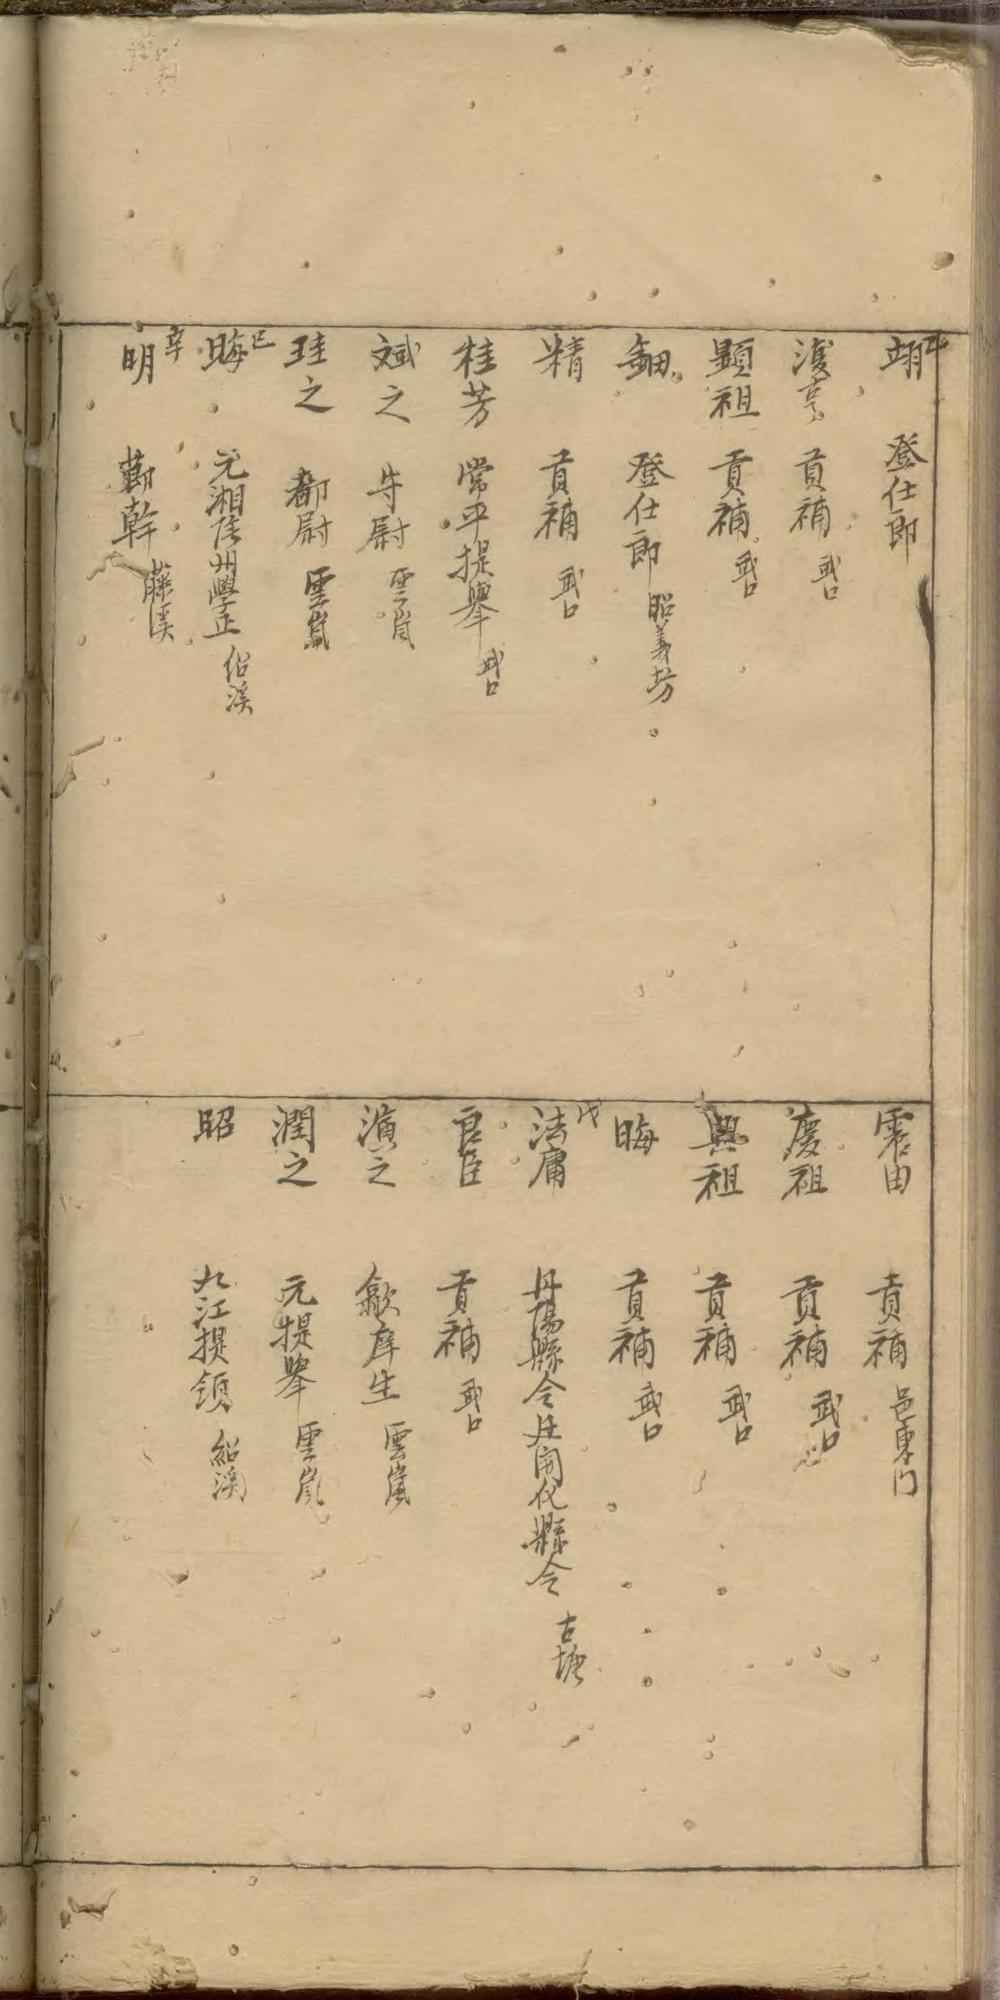 翊 登仕郎
復亨 貢補 武口
顯祖 貢補 武口
鈿 登仕郎 昭義坊
精 貢補 武口
桂芳 常平提舉 武口
斌之 寺尉 雲嵐
珪之 都尉 雲嵐
晦 已 元湘陰州學正 紹溪
明 辛 勸幹 藤溪
震由 貢補 邑東门
慶祖 貢補 武口
興祖 貢補 武口
晦 貢補 武口
法庸 戊 丹陽縣令 開化縣令 古塘
臣 貢補 武口
演之 歙庠生 雲嵐
潤之 元提舉 雲嵐
昭 九江提領 紹溪